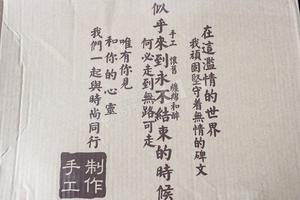 在這濫情的世界
我頑固堅守着無情的碑文
似乎來到永不結束的時候
手工 懷舊 纏綿和醉
何必走到無路可走
唯有你見
和你的心靈
我們一起與時尚同行
制作
手工